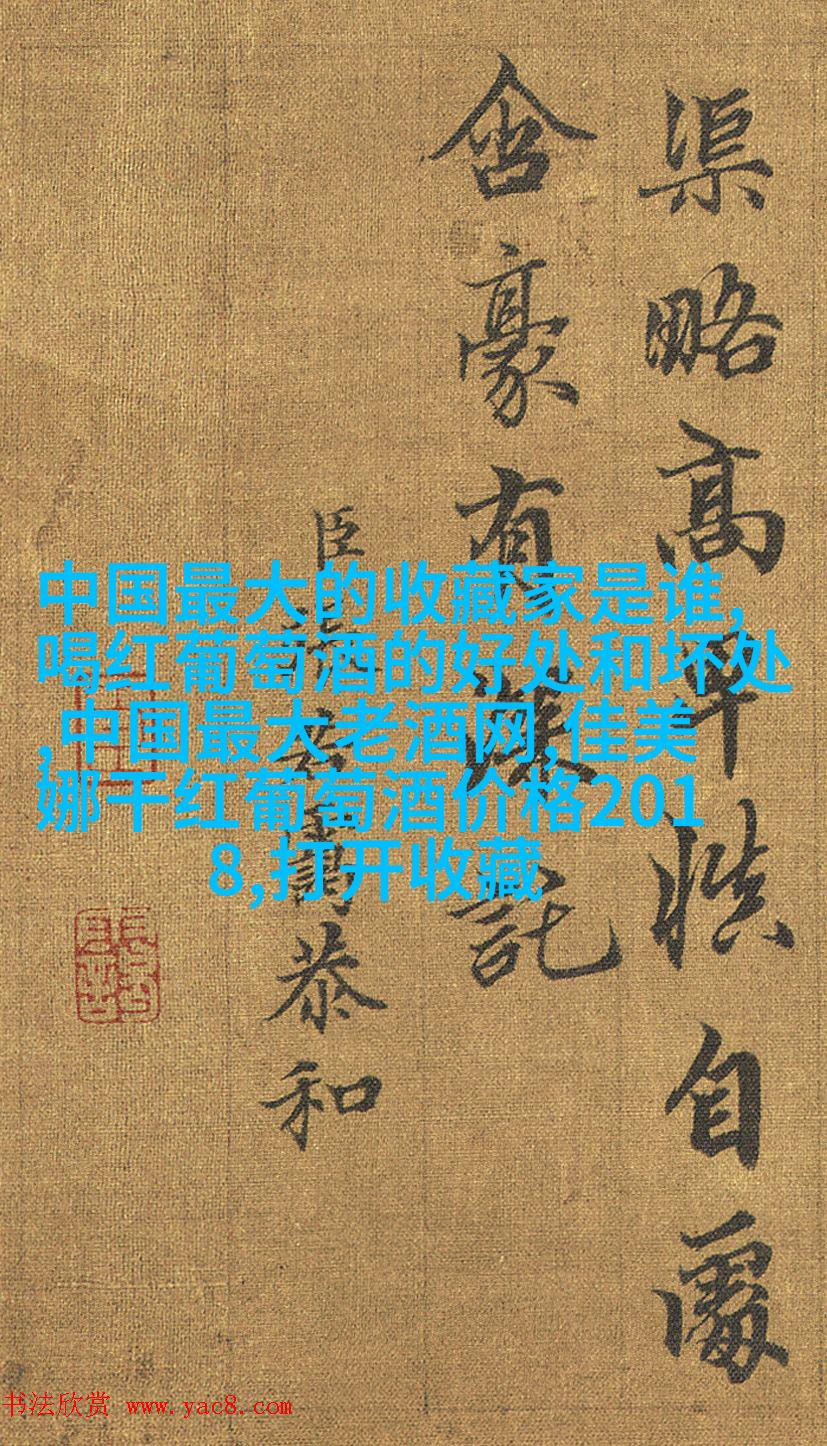 渠略高卑自處
含豪有託
臣若靄恭和
中国最大的收藏家是谁,
喝红葡萄酒的好处和坏处
,中国最大老酒网,佳美
娜干红葡萄酒价格201
8,打开收藏
书法欣赏 www.yac8.com